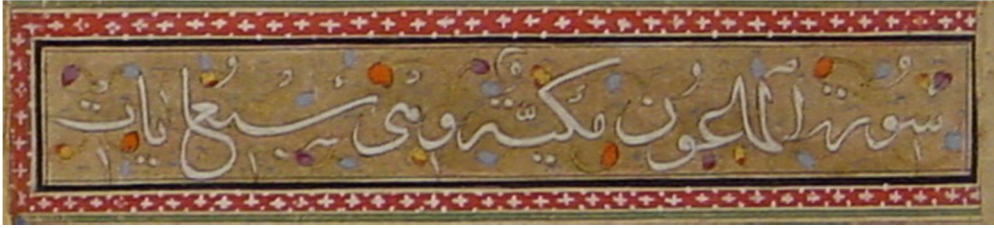 سُورَةُ الْمَاعُونِ مَكِّيَّةٌ وَهِيَ سَبْعُ اٰيَاتٍ